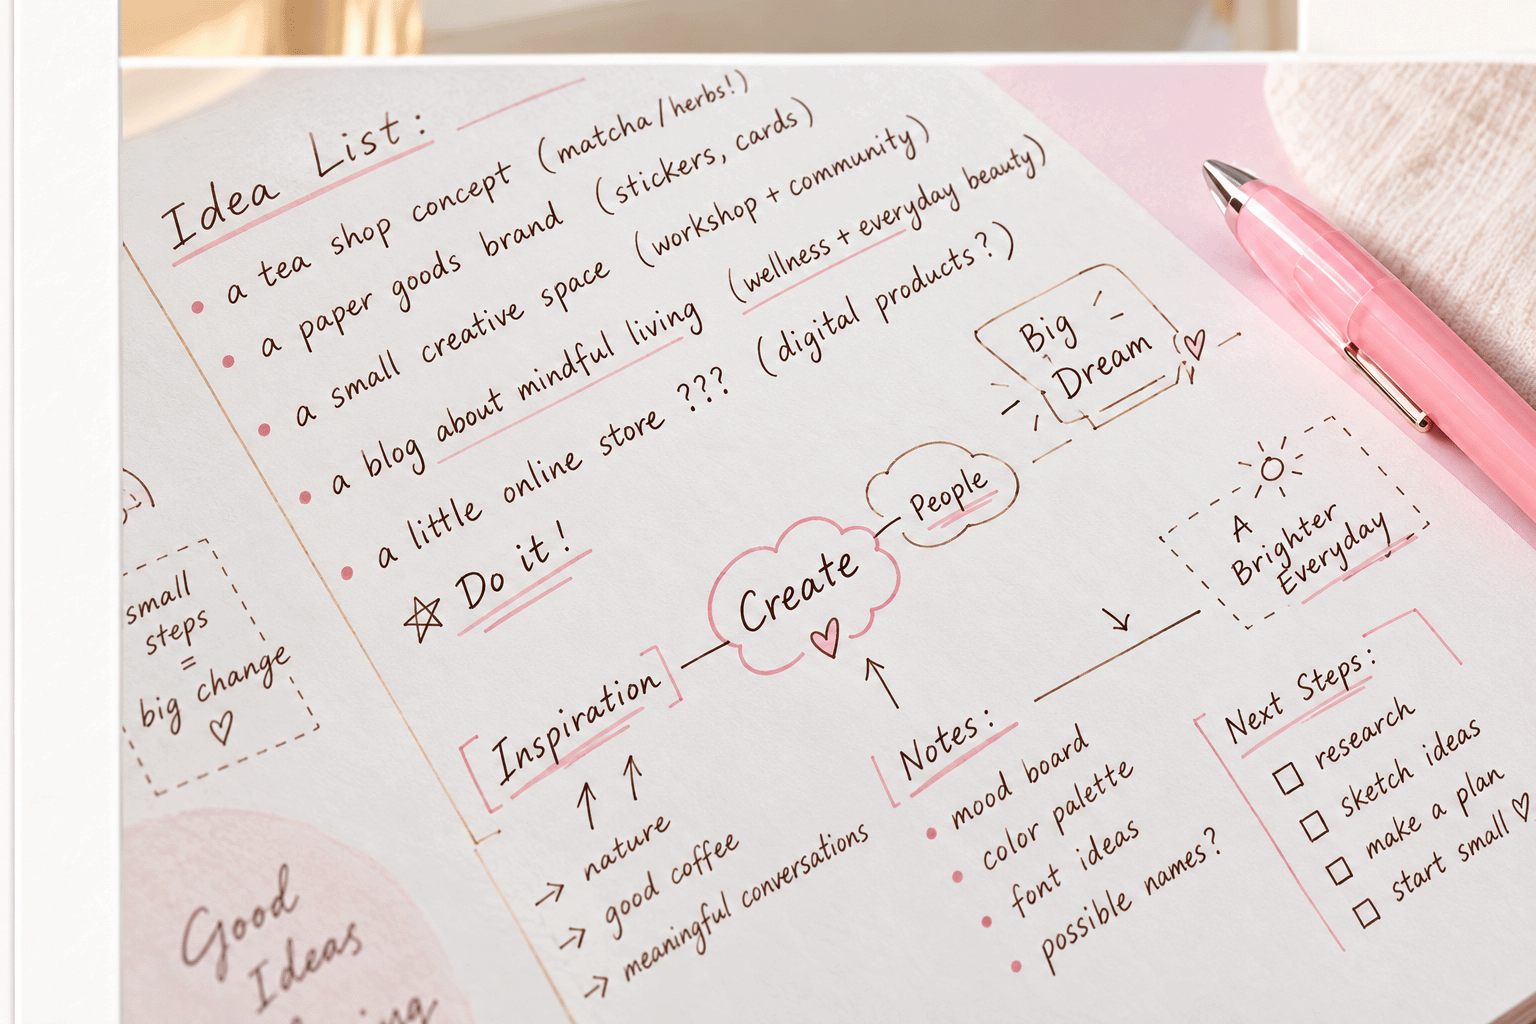 Idea List:
a tea shop concept (matcha/herbs!)
a paper goods brand (stickers, cards)
a small creative space (workshop + community)
a blog about mindful living (wellness + everyday beauty)
a little online store ??? (digital products?)
Do it!
Big
Dream
People
Create
A
Brighter
Everyday
small
steps
=
big change
Inspiration
nature
good coffee
meaningful conversations
Notes:
mood board
color palette
font ideas
possible names?
Next Steps:
research
sketch ideas
make a plan
start small
Good
Ideas